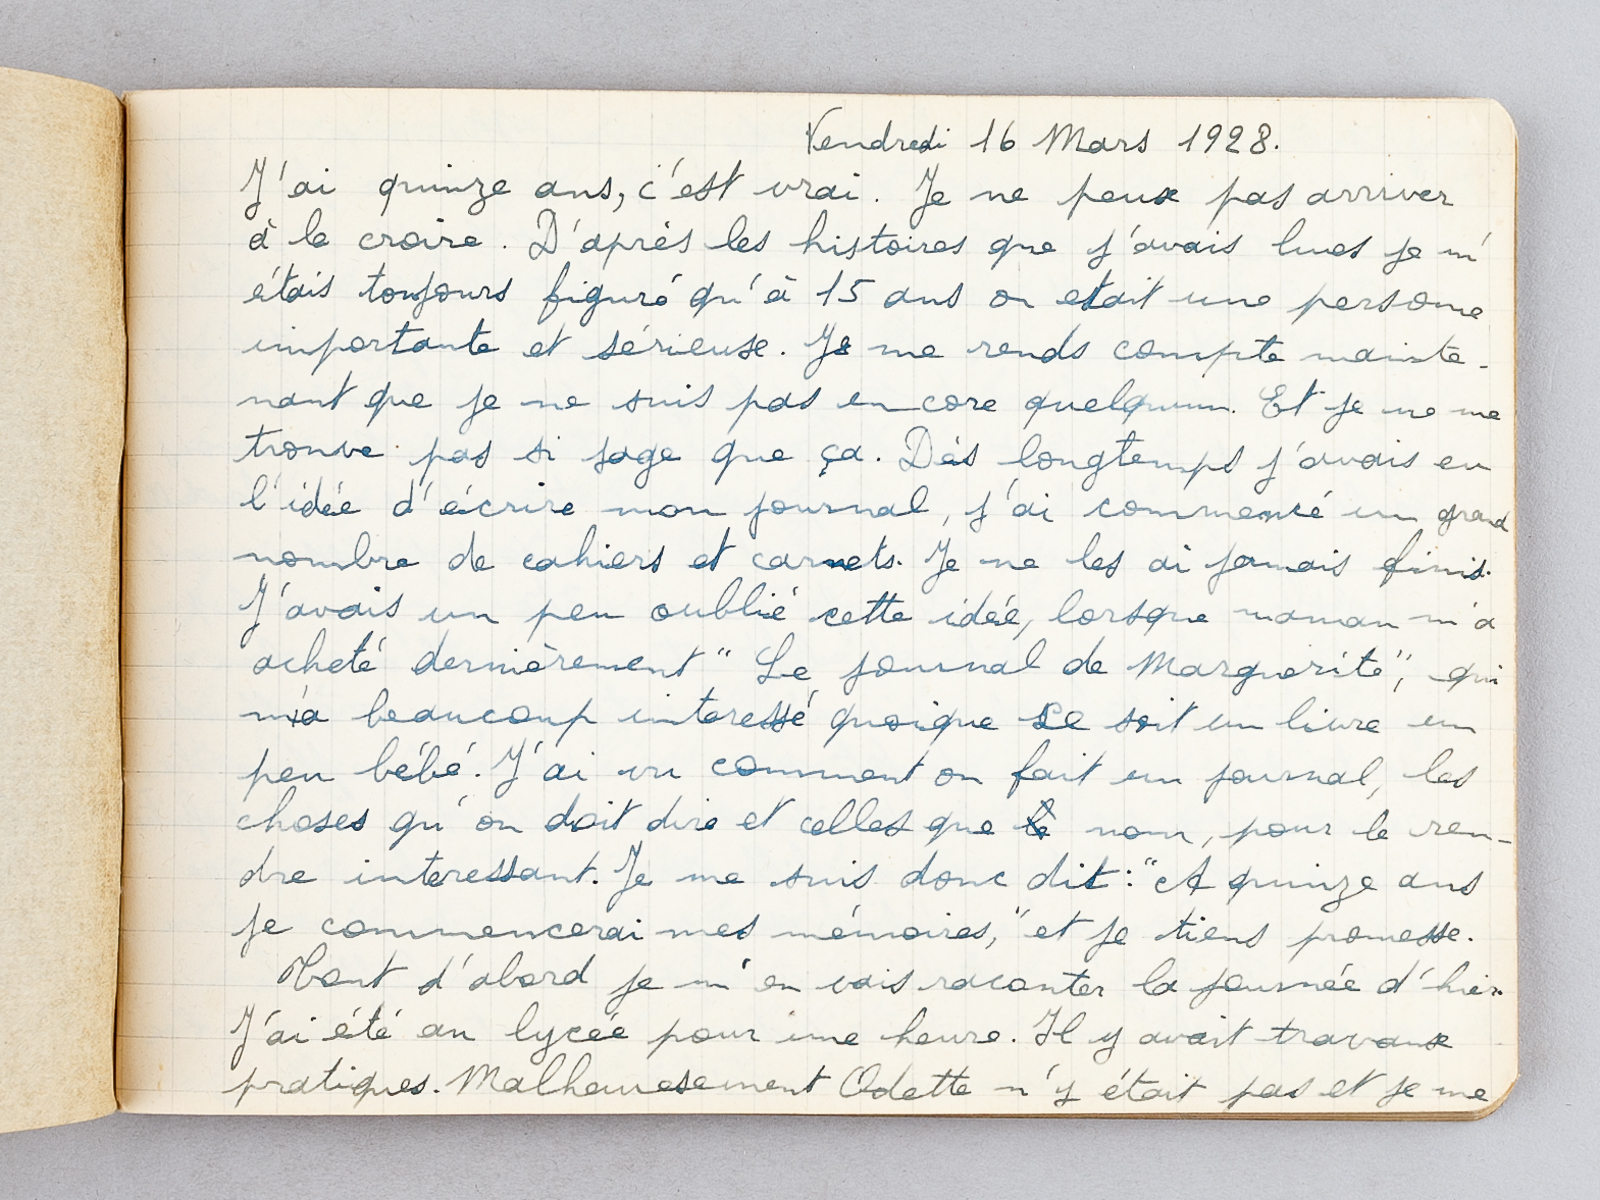 Vendredi 16 Mars 1928.
J'ai quinze ans, c'est vrai. Je ne peux pas arriver
à le croire. D'après les histoires que j'avais lues je m'
étais toujours figuré qu'à 15 ans on etait une persone
importante et sérieuse. Je me rends compte mainte-
nant que je ne suis pas encore quelqu'un. Et je ne me
trouve pas si sage que ça. Dès longtemps j'avais eu
l'idée d'écrire mon journal, j'ai commencé un grand
nombre de cahiers et carnets. Je ne les ai jamais finis.
J'avais un peu oublié cette idée, lorsque maman m'a
acheté dernièrement "Le journal de Marguerite", qui
m'a beaucoup interessé quoique ce soit un livre un
peu bébé. J'ai vu comment on fait un journal, les
choses qu'on doit dire et celles que non, pour le ren-
dre interessant. Je me suis donc dit: "A quinze ans
je commencerai mes mémoires," et je tiens promesse.
Tout d'abord je m'en vais raconter la journée d'hier.
J'ai été au lycée pour une heure. Il y avait travaux
pratiques. Malheuresement Odette n'y était pas et je me